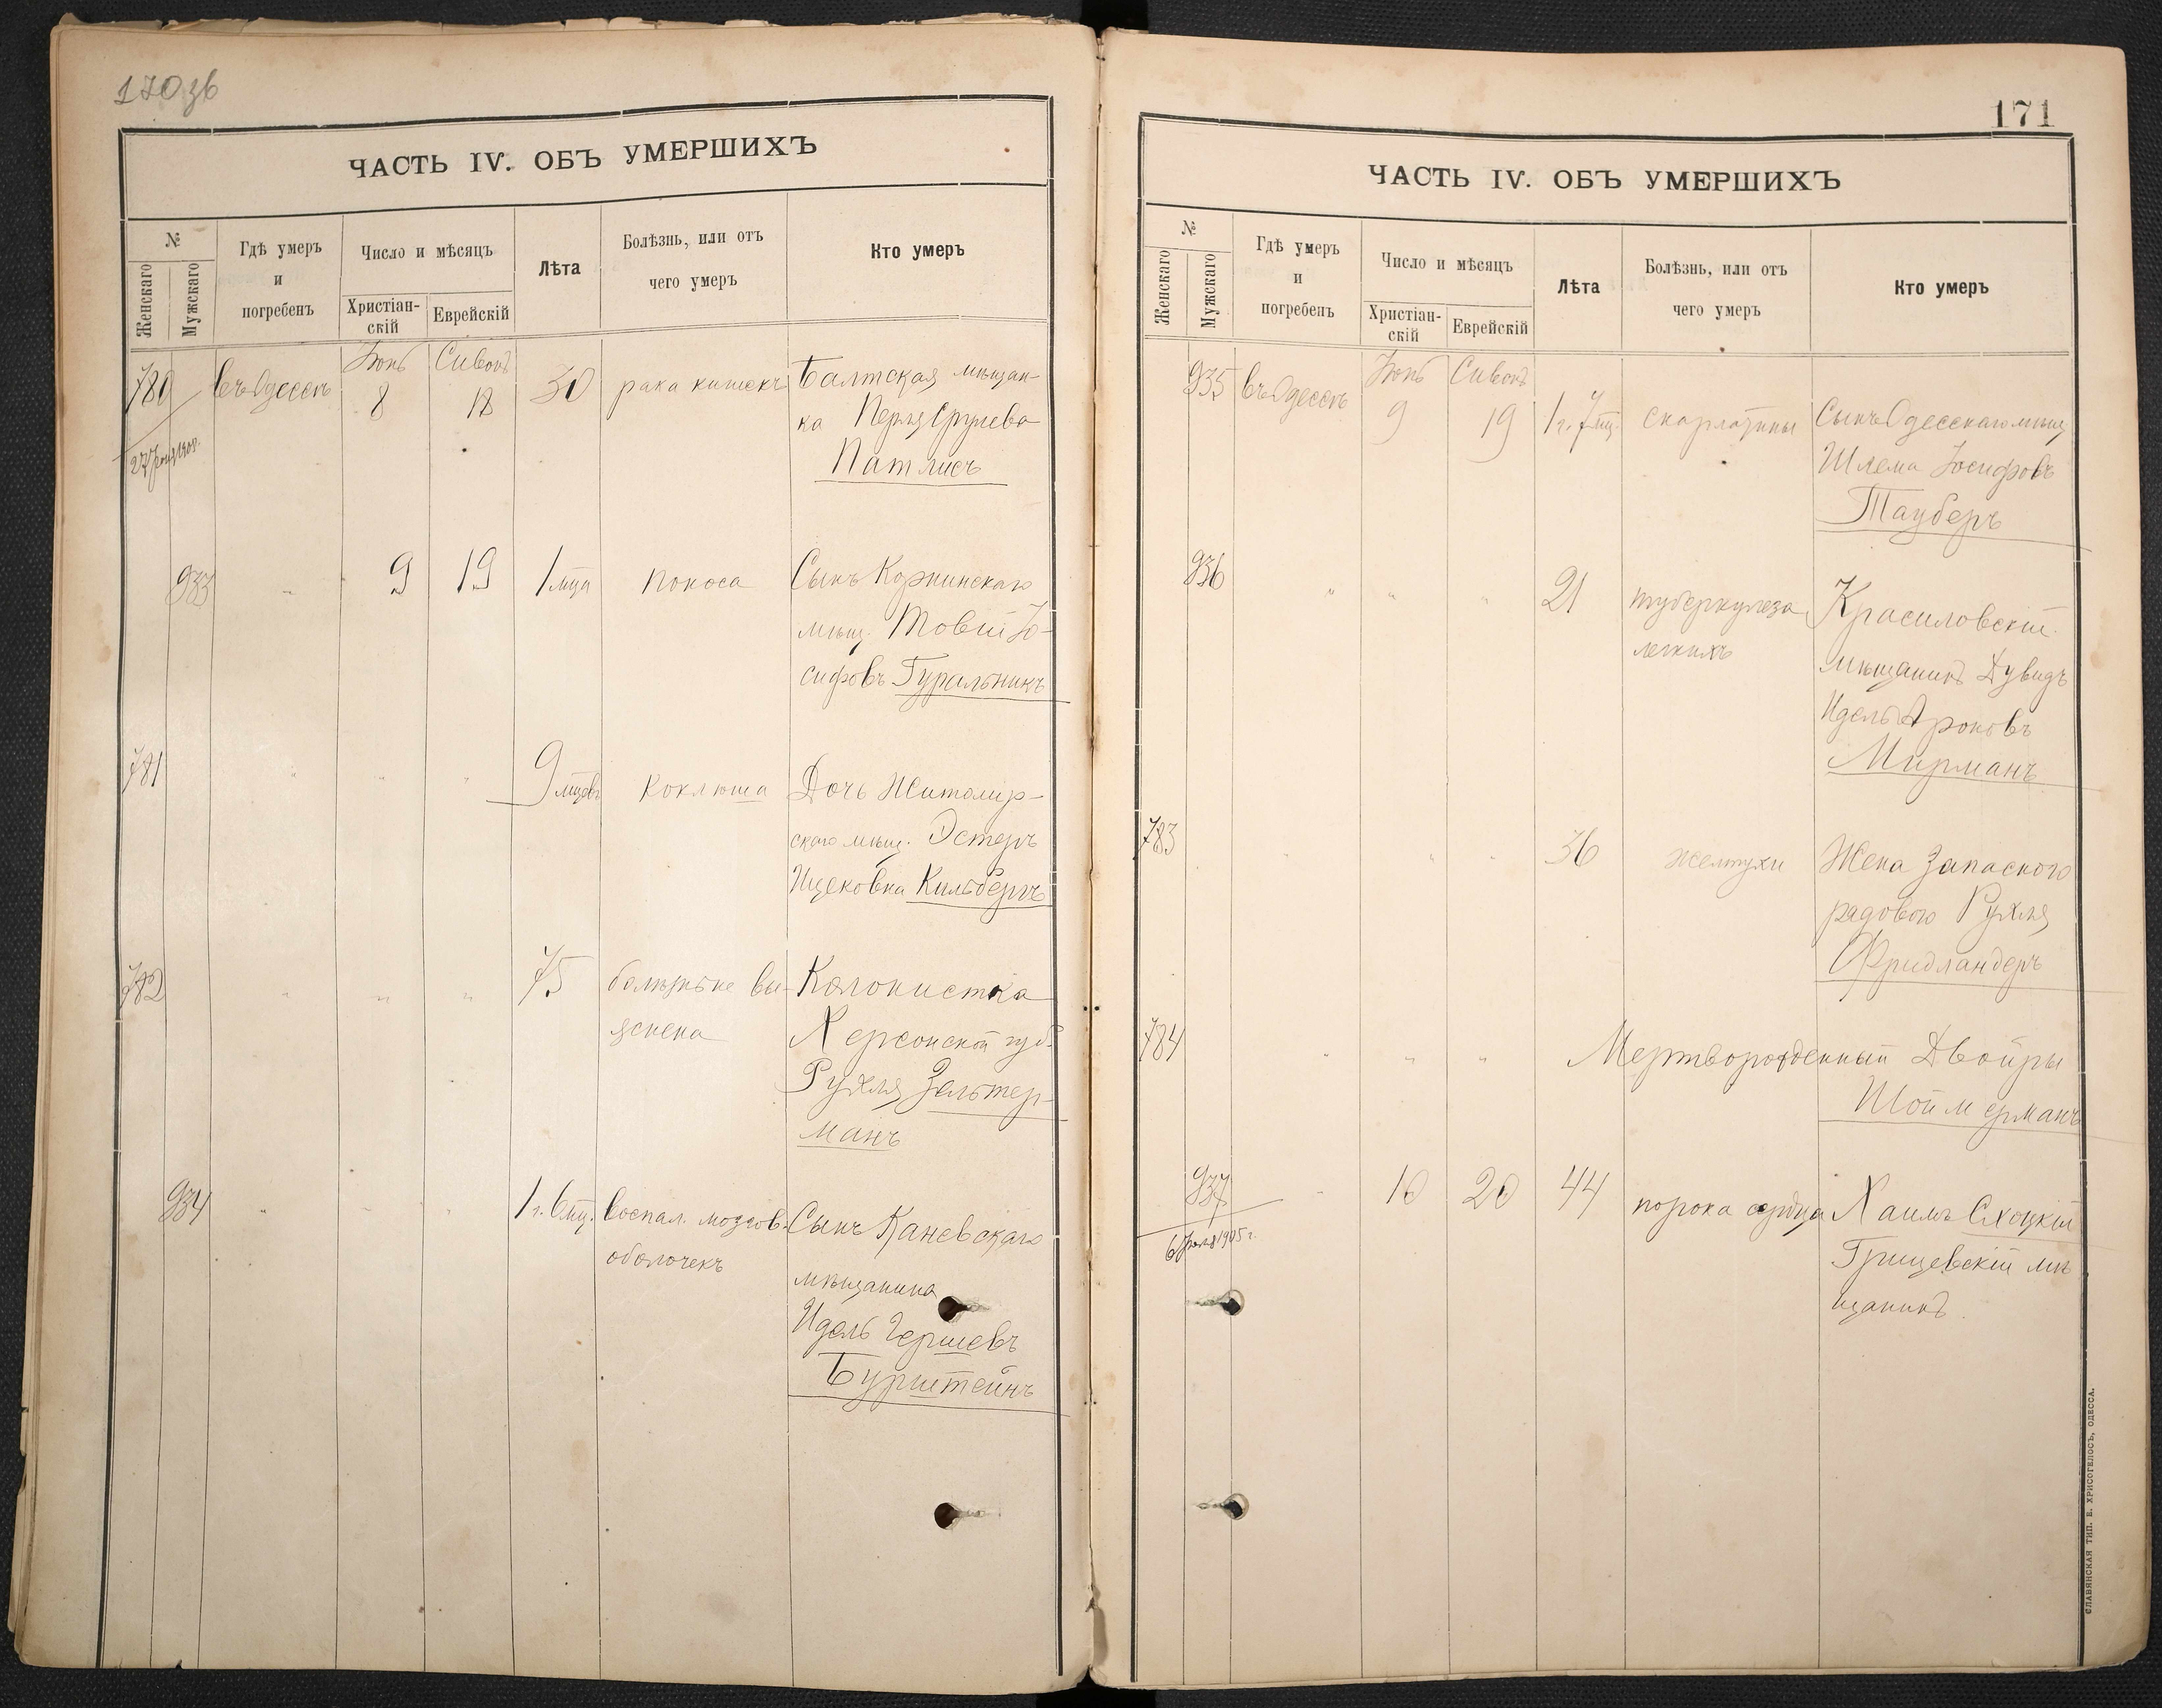 170 зв
ЧАСТЬ IV. ОБЪ УМЕРШИХЪ
№
Женскаго
Мужскаго
Гдѣ умеръ
и
погребенъ
Число и мѣсяцъ
Христіан-
скій
Еврейскій
Лѣта
Болѣзнь, или отъ
чего умеръ
Кто умеръ
780 въ Одессѣ Іюнь 8 Сивонъ 18 30 рака кишекъ Балтская мѣщан-
ка Перля Срулева
Патлисъ
933 " 9 19 1 мца поноса Сынъ Корнинскаго
мѣщ. Товій Іо-
сифовъ Гуральникъ
781 " " " 9 мцевъ коклюша Дочь Житомир-
скаго мѣщ. Эстеръ
Ицековна Кильбергъ
782 " " " 75 болѣзнь не вы- Колонистка
яснена Херсонской губ.
Рухля Зельтер-
манъ
934 " " " " 1 г. 6 мц. воспал. мозгов. Сынъ Каневскаго
оболочекъ мѣщанина
Идель Гершевъ
Бурштейнъ
171
ЧАСТЬ IV. ОБЪ УМЕРШИХЪ
№
Женскаго
Мужскаго
Гдѣ умеръ
и
погребенъ
Число и мѣсяцъ
Христіан-
скій
Еврейскій
Лѣта
Болѣзнь, или отъ
чего умеръ
Кто умеръ
935 въ Одессѣ Іюнь 9 Сивонъ 19 1 г. 7 мц. скарлатины Сынъ Одесскаго мѣщ.
Шлема Іосифовъ
Тауберъ
936 " " " 21 туберкулеза Красиловскій
легкихъ мѣщанинъ Дувидъ
Идель Ароновъ
Мирманъ
783 " " " 36 желтухи Жена запаснаго
рядового Рухля
Фридландеръ
784 " " " Мертворожденный Двойры
Шоймерманъ
937 " 10 20 44 порока сердца Хаимъ Слоцкій
6 1905 г. Грицевскій мѣ
щанинъ
СЛАВЯНСКАЯ ТИП. Е. ХРИСОГЕЛОСЪ, ОДЕССА.